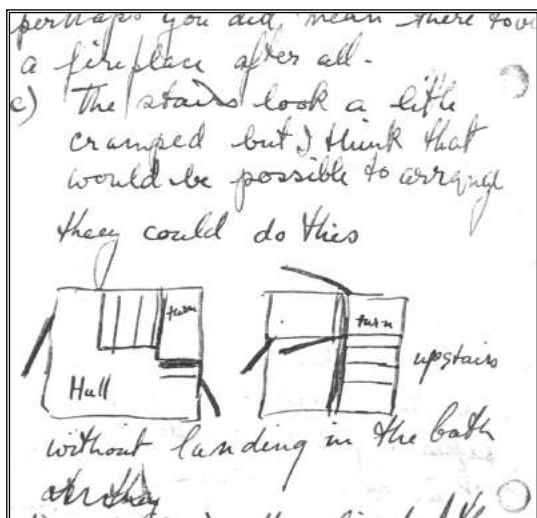 perhaps you did mean there to
a fireplace after all.
c) The stairs look a little
cramped but I think that
would be possible to arrange
they could do this
turn
turn
upstairs
Hall
without landing in the bath